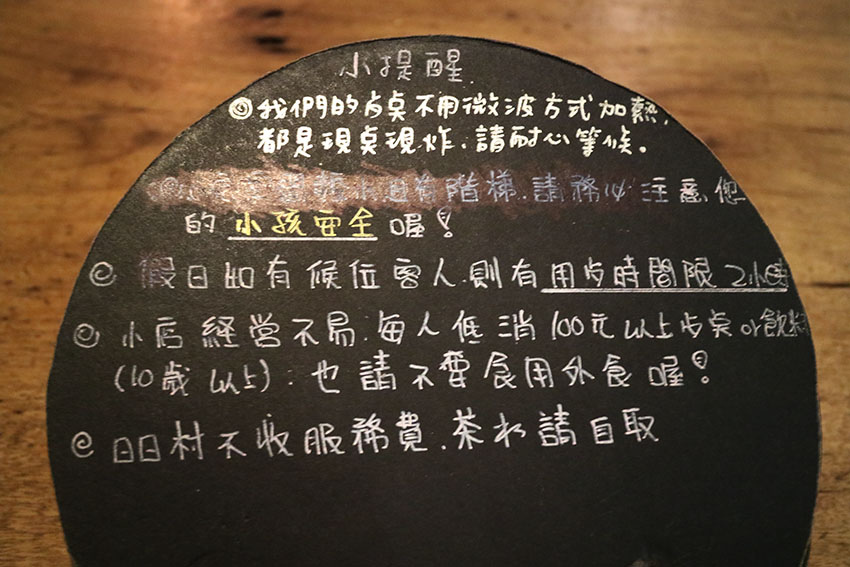 小提醒.
我們的歺奌不用微波方式加熱,
都是現奌現炸.請耐心等候。
有階梯.請務必注意您
的小孩安全喔!
假日如有候位客人.則有用歺時間限2小時
小店経营不易.每人低消100元以上歺奌or飲料
(10歲以上):也請不要食用外食喔!
日日村不收服務費.茶水請自取